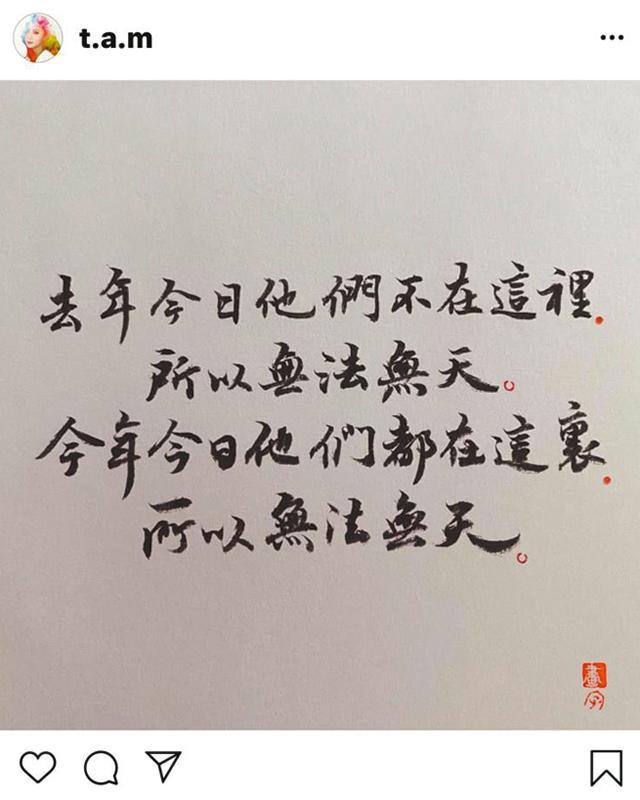 t.a.m
去年今日他們不在這裡.
所以無法無天。
今年今日他们都在這裏.
所以無法無天。